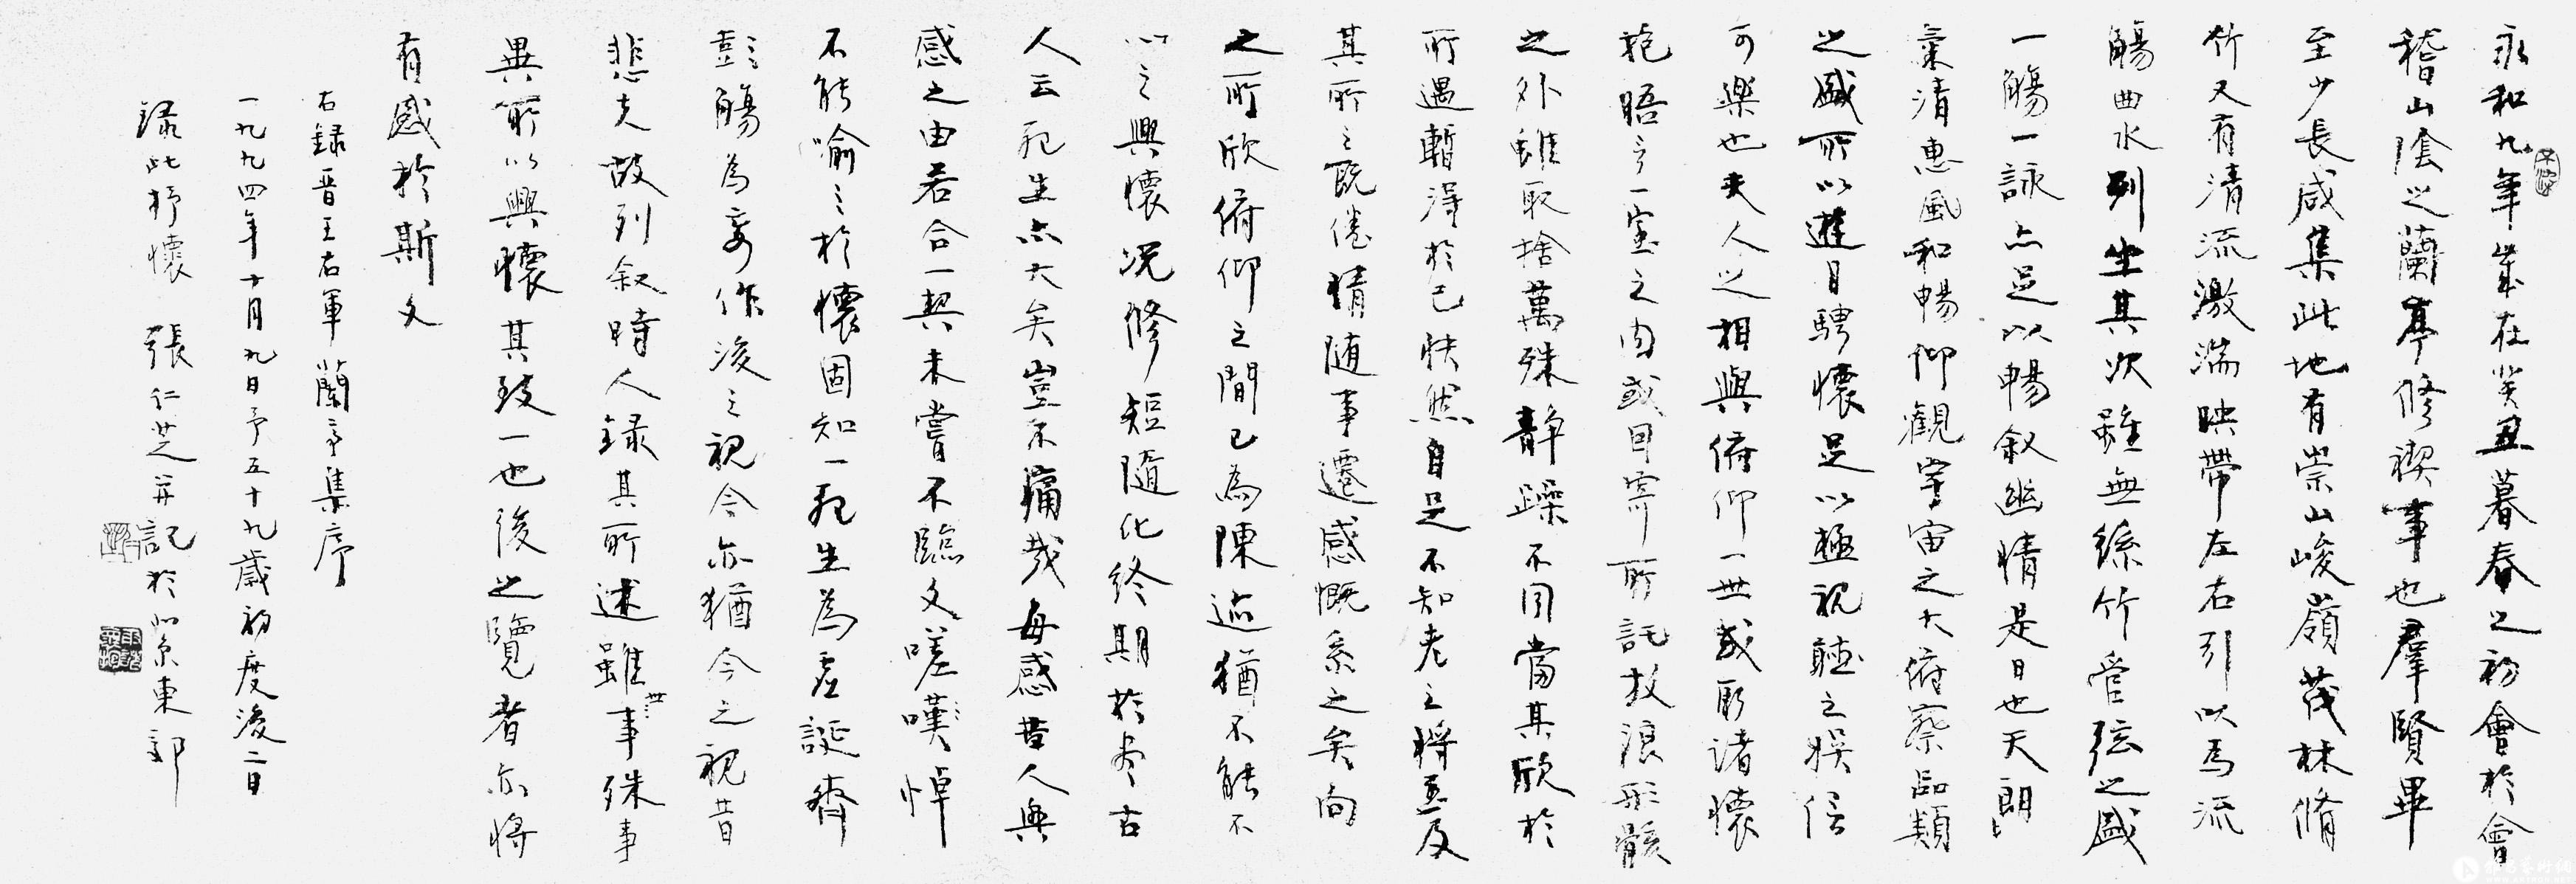 永和九年歲在癸丑暮春之初會於會
稽山陰之蘭亭修禊事也羣賢畢
至少長咸集此地有崇山峻嶺茂林脩
竹又有清流激湍映帶左右引以為流
觴曲水列坐其次雖無絲竹管弦之盛
一觴一詠亦足以暢叙幽情是日也天朗
氣清惠風和暢仰觀宇宙之大俯察品類
之盛所以遊目騁懷足以極視聽之娛信
可樂也夫人之相與俯仰一世或取諸懷
抱晤言一室之內或因寄所託放浪形骸
之外雖取捨萬殊靜躁不同當其欣於
所遇暫得於己快然自足不知老之將至及
其所之既倦情隨事遷感慨系之矣向
之所欣俯仰之間已為陳迹猶不能不
以之興懷況修短隨化終期於盡古
人云死生亦大矣豈不痛哉每感昔人興
感之由若合一契未嘗不臨文嗟嘆悼
不能喻之於懷固知一死生為虛誕齊
彭觴為妄作後之視今亦猶今之視昔
悲夫故列叙時人錄其所述雖世事殊事
異所以興懷其致一也後之覽者亦將
有感於斯文
右録晋王右軍蘭亭集序
一九九四年十月九日予五十九歲初度後二日
録此抒懷 張仁芝并記於北京東郊